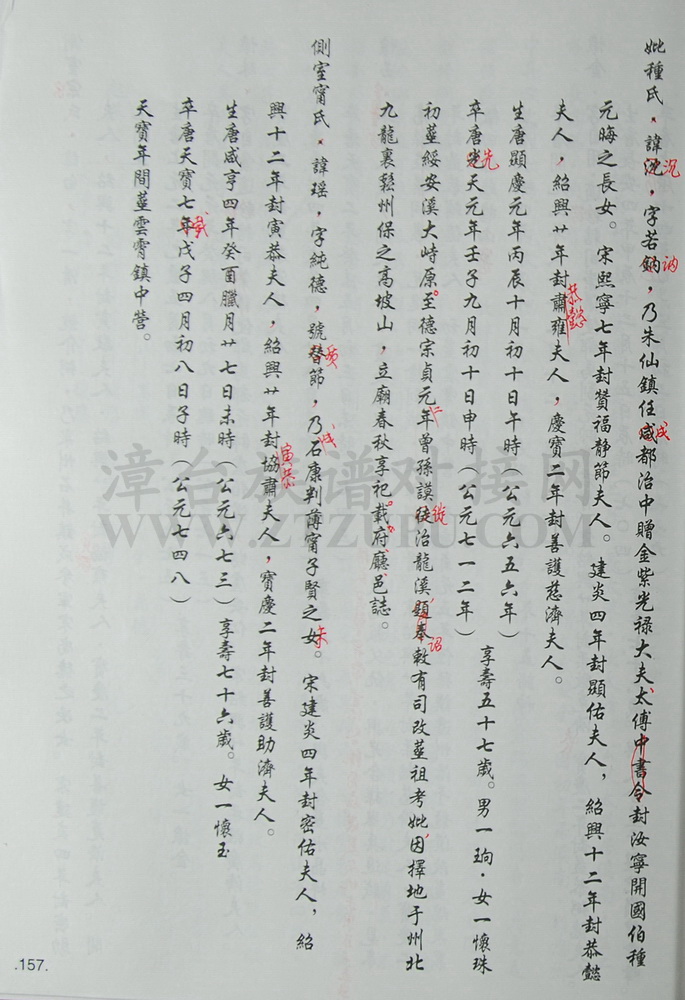 妣種氏．諱沉，字若鈉，乃朱仙鎮任咸都治中贈金紫光祿大夫、太傅中書令封汝寧開國伯種
沉 訥 成
元晦之長女。宋熙寧七年封贊福靜節夫人。建炎四年封顯佑夫人，紹興十二年封恭懿
夫人，紹興廿年封肅雍夫人，慶寶二年封善護慈濟夫人。
恭懿
生唐顯慶元年丙辰十月初十日午時（公元六五六年）
卒唐光天元年壬子九月初十日申時（公元七一二年） 享壽五十七歲。男一珦．女一懷珠
先
初葬綏安溪大峙原。至德宗貞元年曾孫謨徒治龍溪、顯奉敕有司改葬祖考妣、因擇地于州北
二 縱 詔
九龍裏鬆州保之高坡山，立廟春秋享祀。載府、廳、邑誌。
側室甯氏．諱瑶，字純德，號替節，乃石康判薄甯子賢之女。宋建炎四年封密佑夫人，紹
興十二年封寅恭夫人，紹興廿年封協肅夫人，寳慶二年封善護助濟夫人。
寅恭
生唐咸亨四年癸酉臘月廿七日未時（公元六七三）享壽七十六歲。女一懷玉
卒唐天寶七年戊子四月初八日子時（公元七四八）
天寶年間葬雲霄鎮中營。
漳台族谱对接网
WWW.ZTZUPU.COM
.157.